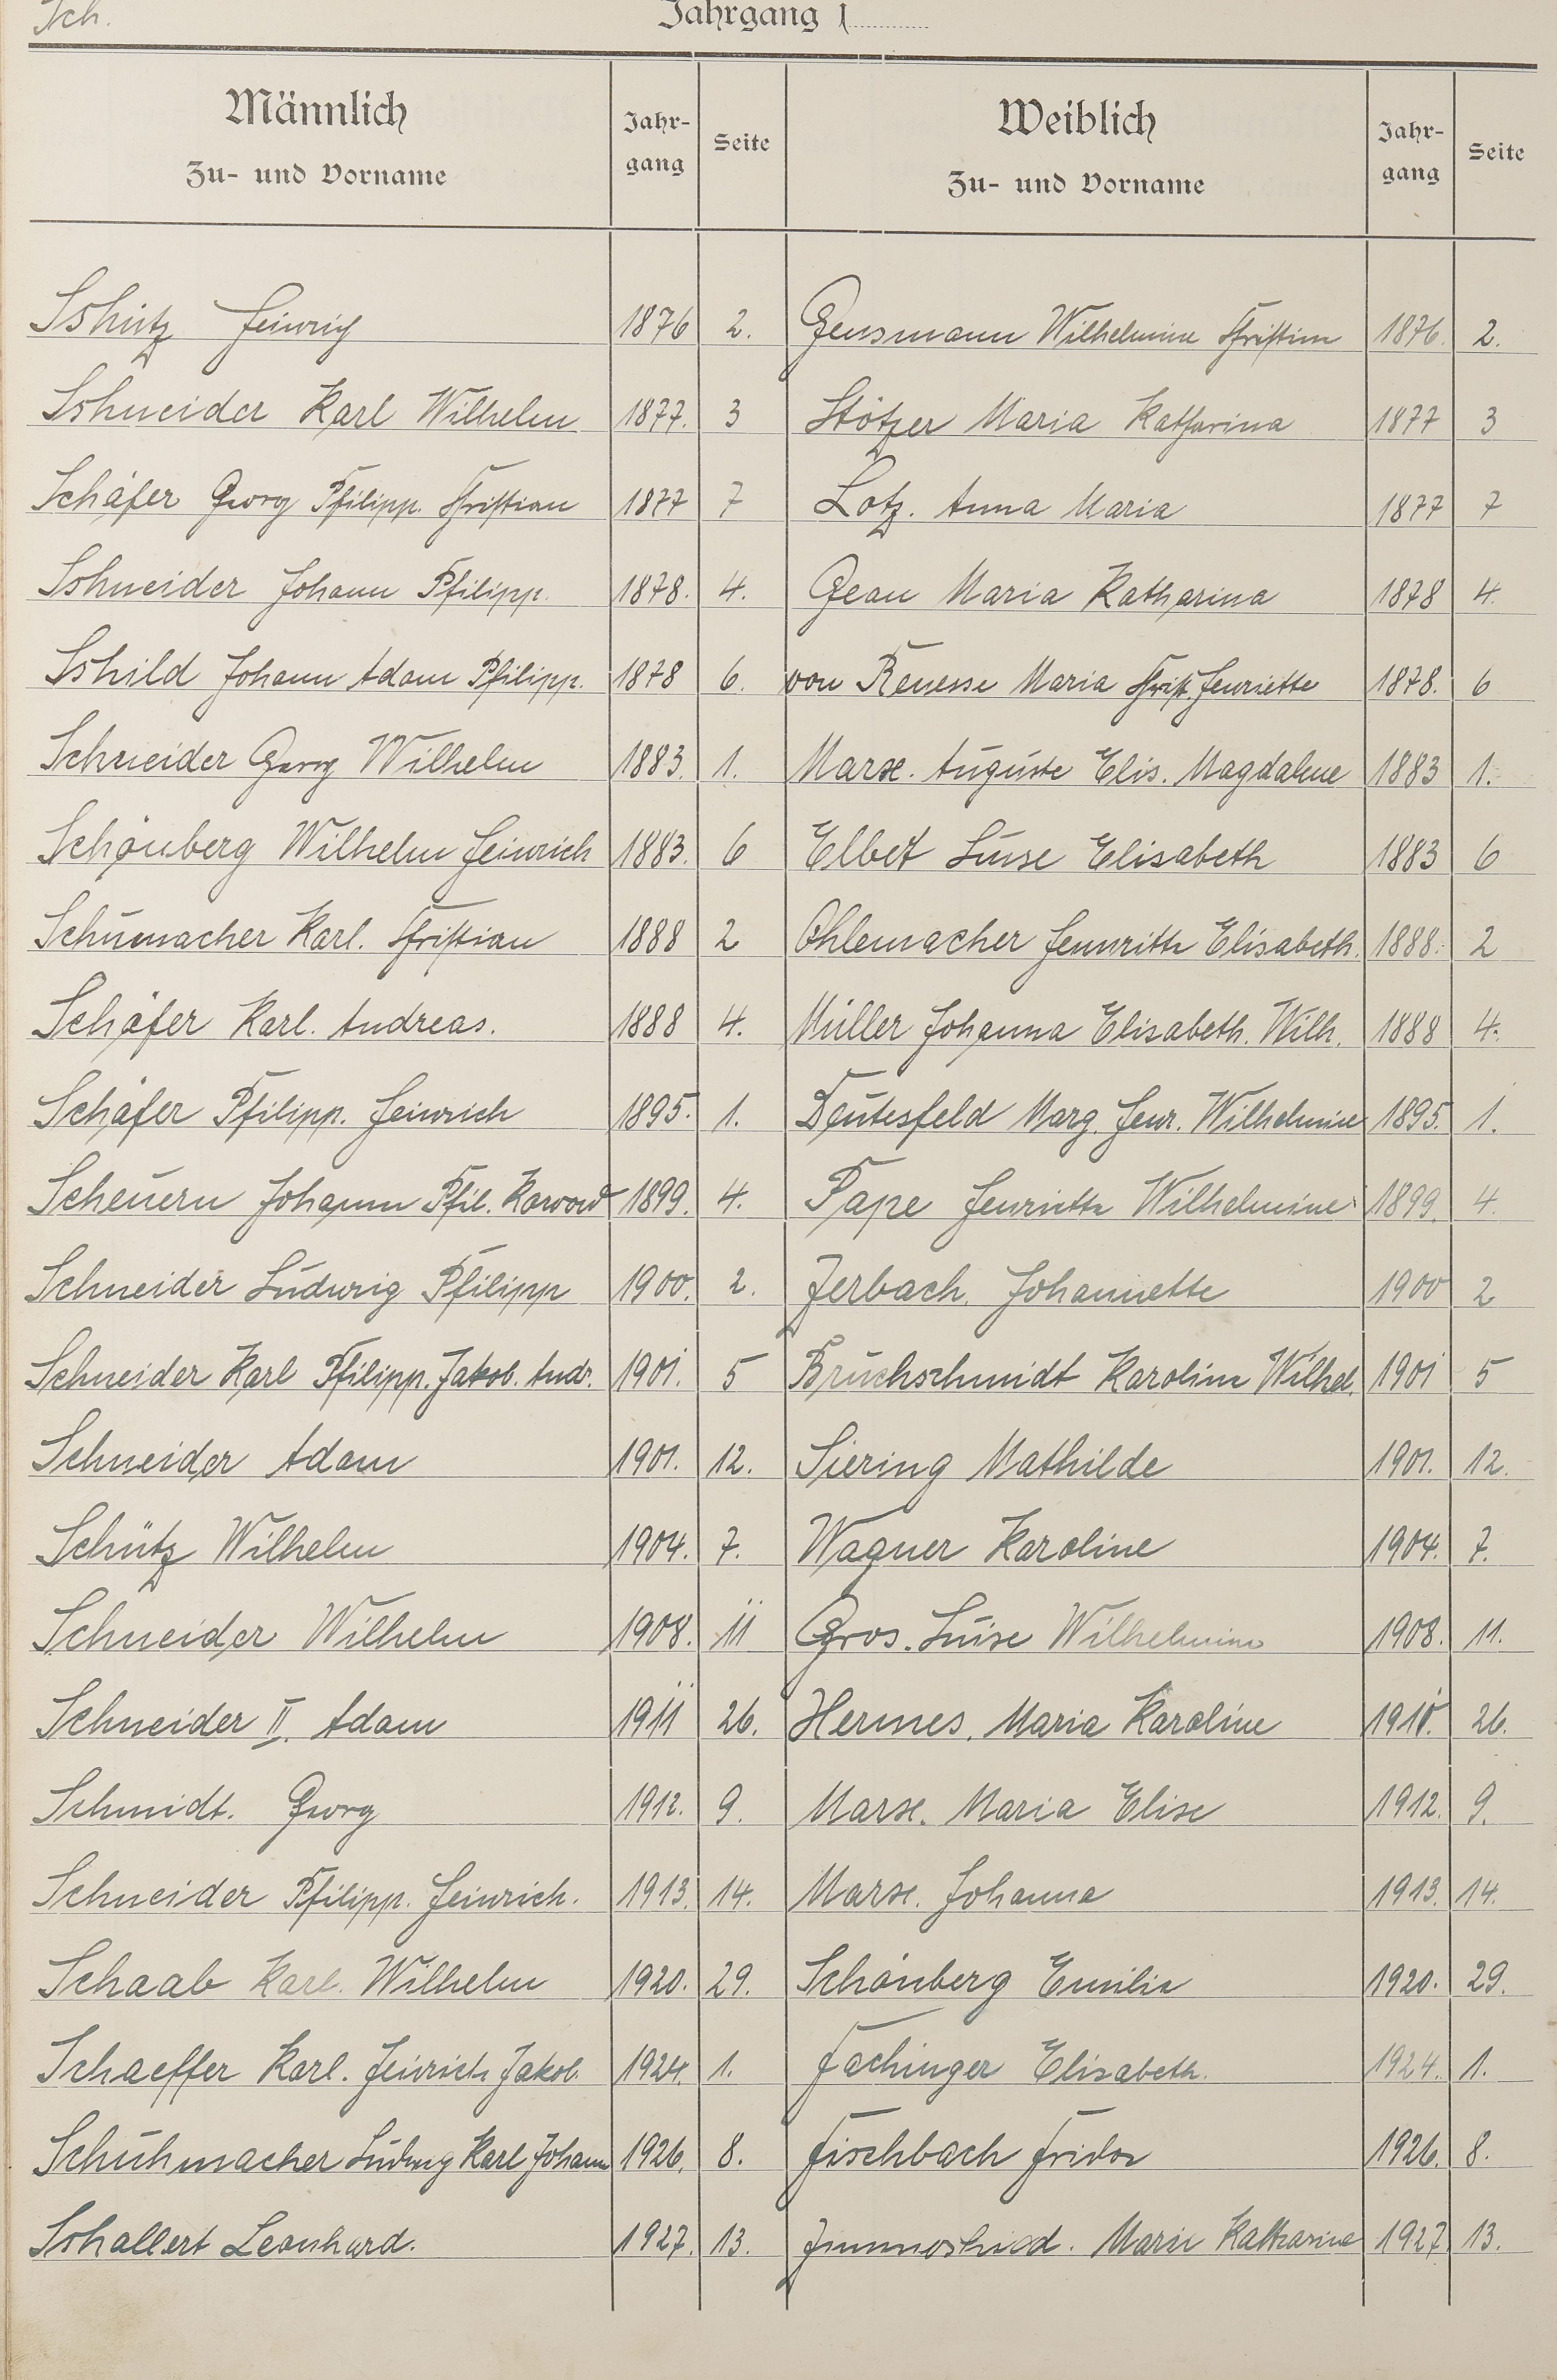 Sch.
Jahrgang 1
Männlich
Zu- und Vorname
Jahr-
gang
Seite
Weiblich
Zu- und Vorname
Jahr-
gang
Seite
Schütz Heinrich 1876 2. Gensmann Wilhelmine Christine 1876. 2.
Schneider Karl Wilhelm 1877. 3 Stötzer Maria Katharina 1877 3
Schäfer Georg Philipp. Christian 1877 7 Lotz. Anna Maria 1877 7
Schneider Johann Philipp. 1878. 4. Gean Maria Katharina 1878 4.
Schild Johann Adam Philipp. 1878 6. von Renesse Maria Christ. Henriette 1878. 6
Schneider Georg Wilhelm 1883. 1. Marx. Auguste Elis. Magdalene 1883 1.
Schönberg Wilhelm Heinrich 1883. 6 Elbet Luise Elisabeth 1883 6
Schumacher Karl. Christian 1888 2 Ohlemacher Henriette Elisabeth. 1888. 2
Schäfer Karl. Andreas. 1888 4. Müller Johanna Elisabeth. Wilh. 1888 4.
Schäfer Philipp. Heinrich 1895. 1. Deutesfeld Marg. Henr. Wilhelmine 1895. 1.
Scheuern Johann Phil. 1899. 4. Pape Henriette Wilhelmine 1899. 4.
Schneider Ludwig Philipp 1900. 2. Zerbach. Johannette 1900 2
Schneider Karl Philipp. Jakob. Andr. 1901. 5 Bruchschmidt Karoline Wilhel. 1901 5
Schneider Adam 1901. 12. Siering Mathilde 1901. 12.
Schütz Wilhelm 1904. 7. Wagner Karoline 1904. 7.
Schneider Wilhelm 1908. 11 Gros. Luise Wilhelmine 1908. 11.
Schneider II. Adam 1911 26. Hermes. Maria Karoline 26.
Schmidt. Georg 1912. 9. Marx. Maria Elise 1912. 9.
Schneider Philipp. Heinrich. 1913. 14. Marx. Johanna 1913. 14.
Schaab Karl. Wilhelm 1920. 29. Schönberg Emilie 1920. 29.
Schaeffer Karl. Heinrich Jakob. 1924. 1. Fachinger Elisabeth. 1924. 1.
Schuhmacher Ludwig Karl Johann 1926. 8. Fischbach Frieda 1926. 8.
Schallert Leonhard. 1927. 13. Marie Katharina 1927. 13.